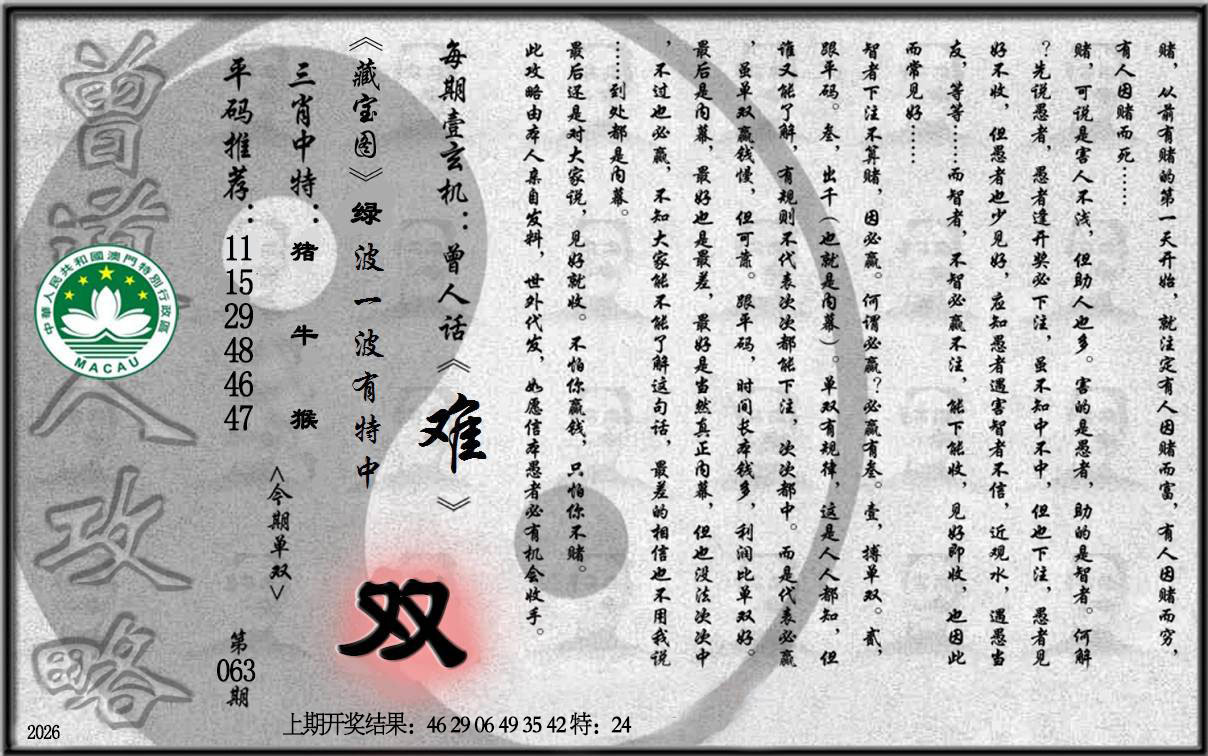 赌，从前有赌的第一天开始，就注定有人因赌而富，有人因赌而穷，
有人因赌而死……
赌，可说是害人不浅，但助人也多。害的是愚者，助的是智者。何解
？先说愚者，愚者逢开奖必下注，虽不知中不中，但也下注，愚者见
好不收，但愚者也少见好，应知愚者遇害智者不信，近观水，遇愚当
友，等等……而智者，不智必赢不注，能下能收，见好即收，也因此
而常见好……
智者下注不算赌，因必赢。何谓必赢？必赢有叁。壹，搏单双。贰，
跟平码。叁，出千（也就是内幕）。单双有规律，这是人人都知，但
谁又能了解，有规则不代表次次都能下注，次次都中。而是代表必赢
，虽单双赢钱慢，但可靠。跟平码，时间长本钱多，利润比单双好。
最后是内幕，最好也是最差，最好是当然真正内幕，但也没法次次中
，不过也必赢，不知大家能不能了解这句话，最差的相信也不用我说
……到处都是内幕。
最后还是对大家说，见好就收。不怕你赢钱，只怕你不赌。
此攻略由本人亲自发料，世外代发，如愿信本愚者必有机会收手。
每期壹玄机：曾人话《难》
《藏宝图》绿波一波有特中
双
三肖中特：猪牛猴
<今期单双>
平码推荐：
11
15
29
48
46
47
第
063
期
曾道人攻略
中華人民共和國澳門特別行政區
MACAU
上期开奖结果：46 29 06 49 35 42 特：24
2026